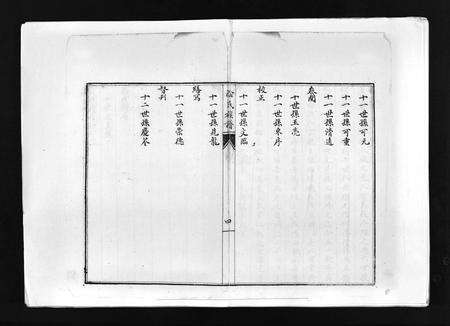 十一世孫可元
十一世孫可重
十一世孫清遠
參閱
十世孫玉亮
十一世孫東序
校正
十一世孫文臨
氏族譜
四
十一世孫兆龍
繕寫
十一世孫崇德
督刊
十二世孫慶